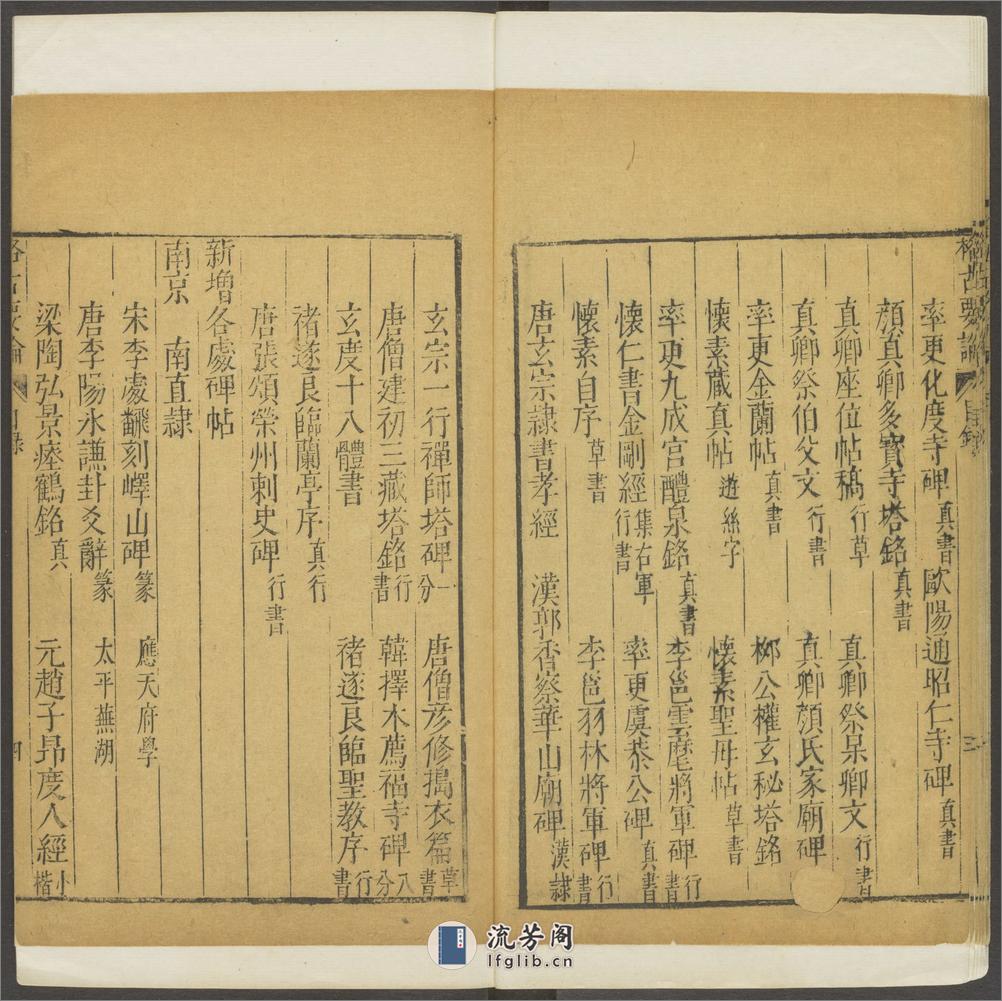 格古要論 目錄 三
率更化度寺碑 真書 歐陽通昭仁寺碑 真書
顏真卿多寶寺塔銘 真書
真卿座位帖稿 行草 真卿祭杲卿文 行書
真卿祭伯父文 行書 真卿顏氏家廟碑
率更金蘭帖 真書 柳公權玄秘塔銘
懷素藏真帖 遊絲字 懷素聖母帖 草書
率更九成宮醴泉銘 真書 李邕雲麾將軍碑 行書
懷仁書金剛經 集右軍行書 率更虞恭公碑 真書
懷素自序 草書 李邕羽林將軍碑 行書
唐玄宗隷書孝經 漢郭香察華山廟碑 漢隷
玄宗一行禪師塔碑 八分 唐僧彥修搗衣篇 草書
唐僧建初三藏塔銘 行書 韓擇木薦福寺碑 八分
玄度十八體書 褚遂良臨聖教序 行書
褚遂良臨蘭亭序 真行
唐張頌榮州刺史碑 行書
新增各處碑帖
南京 南直隷
宋李處巽刻嶧山碑 篆 應天府學
唐李陽氷謙卦爻辭 篆 太平蕪湖
梁陶弘景瘞鶴銘 真 元趙子昂度人經 小楷
格古要論 目錄 四
流芳阁
lfglib.cn